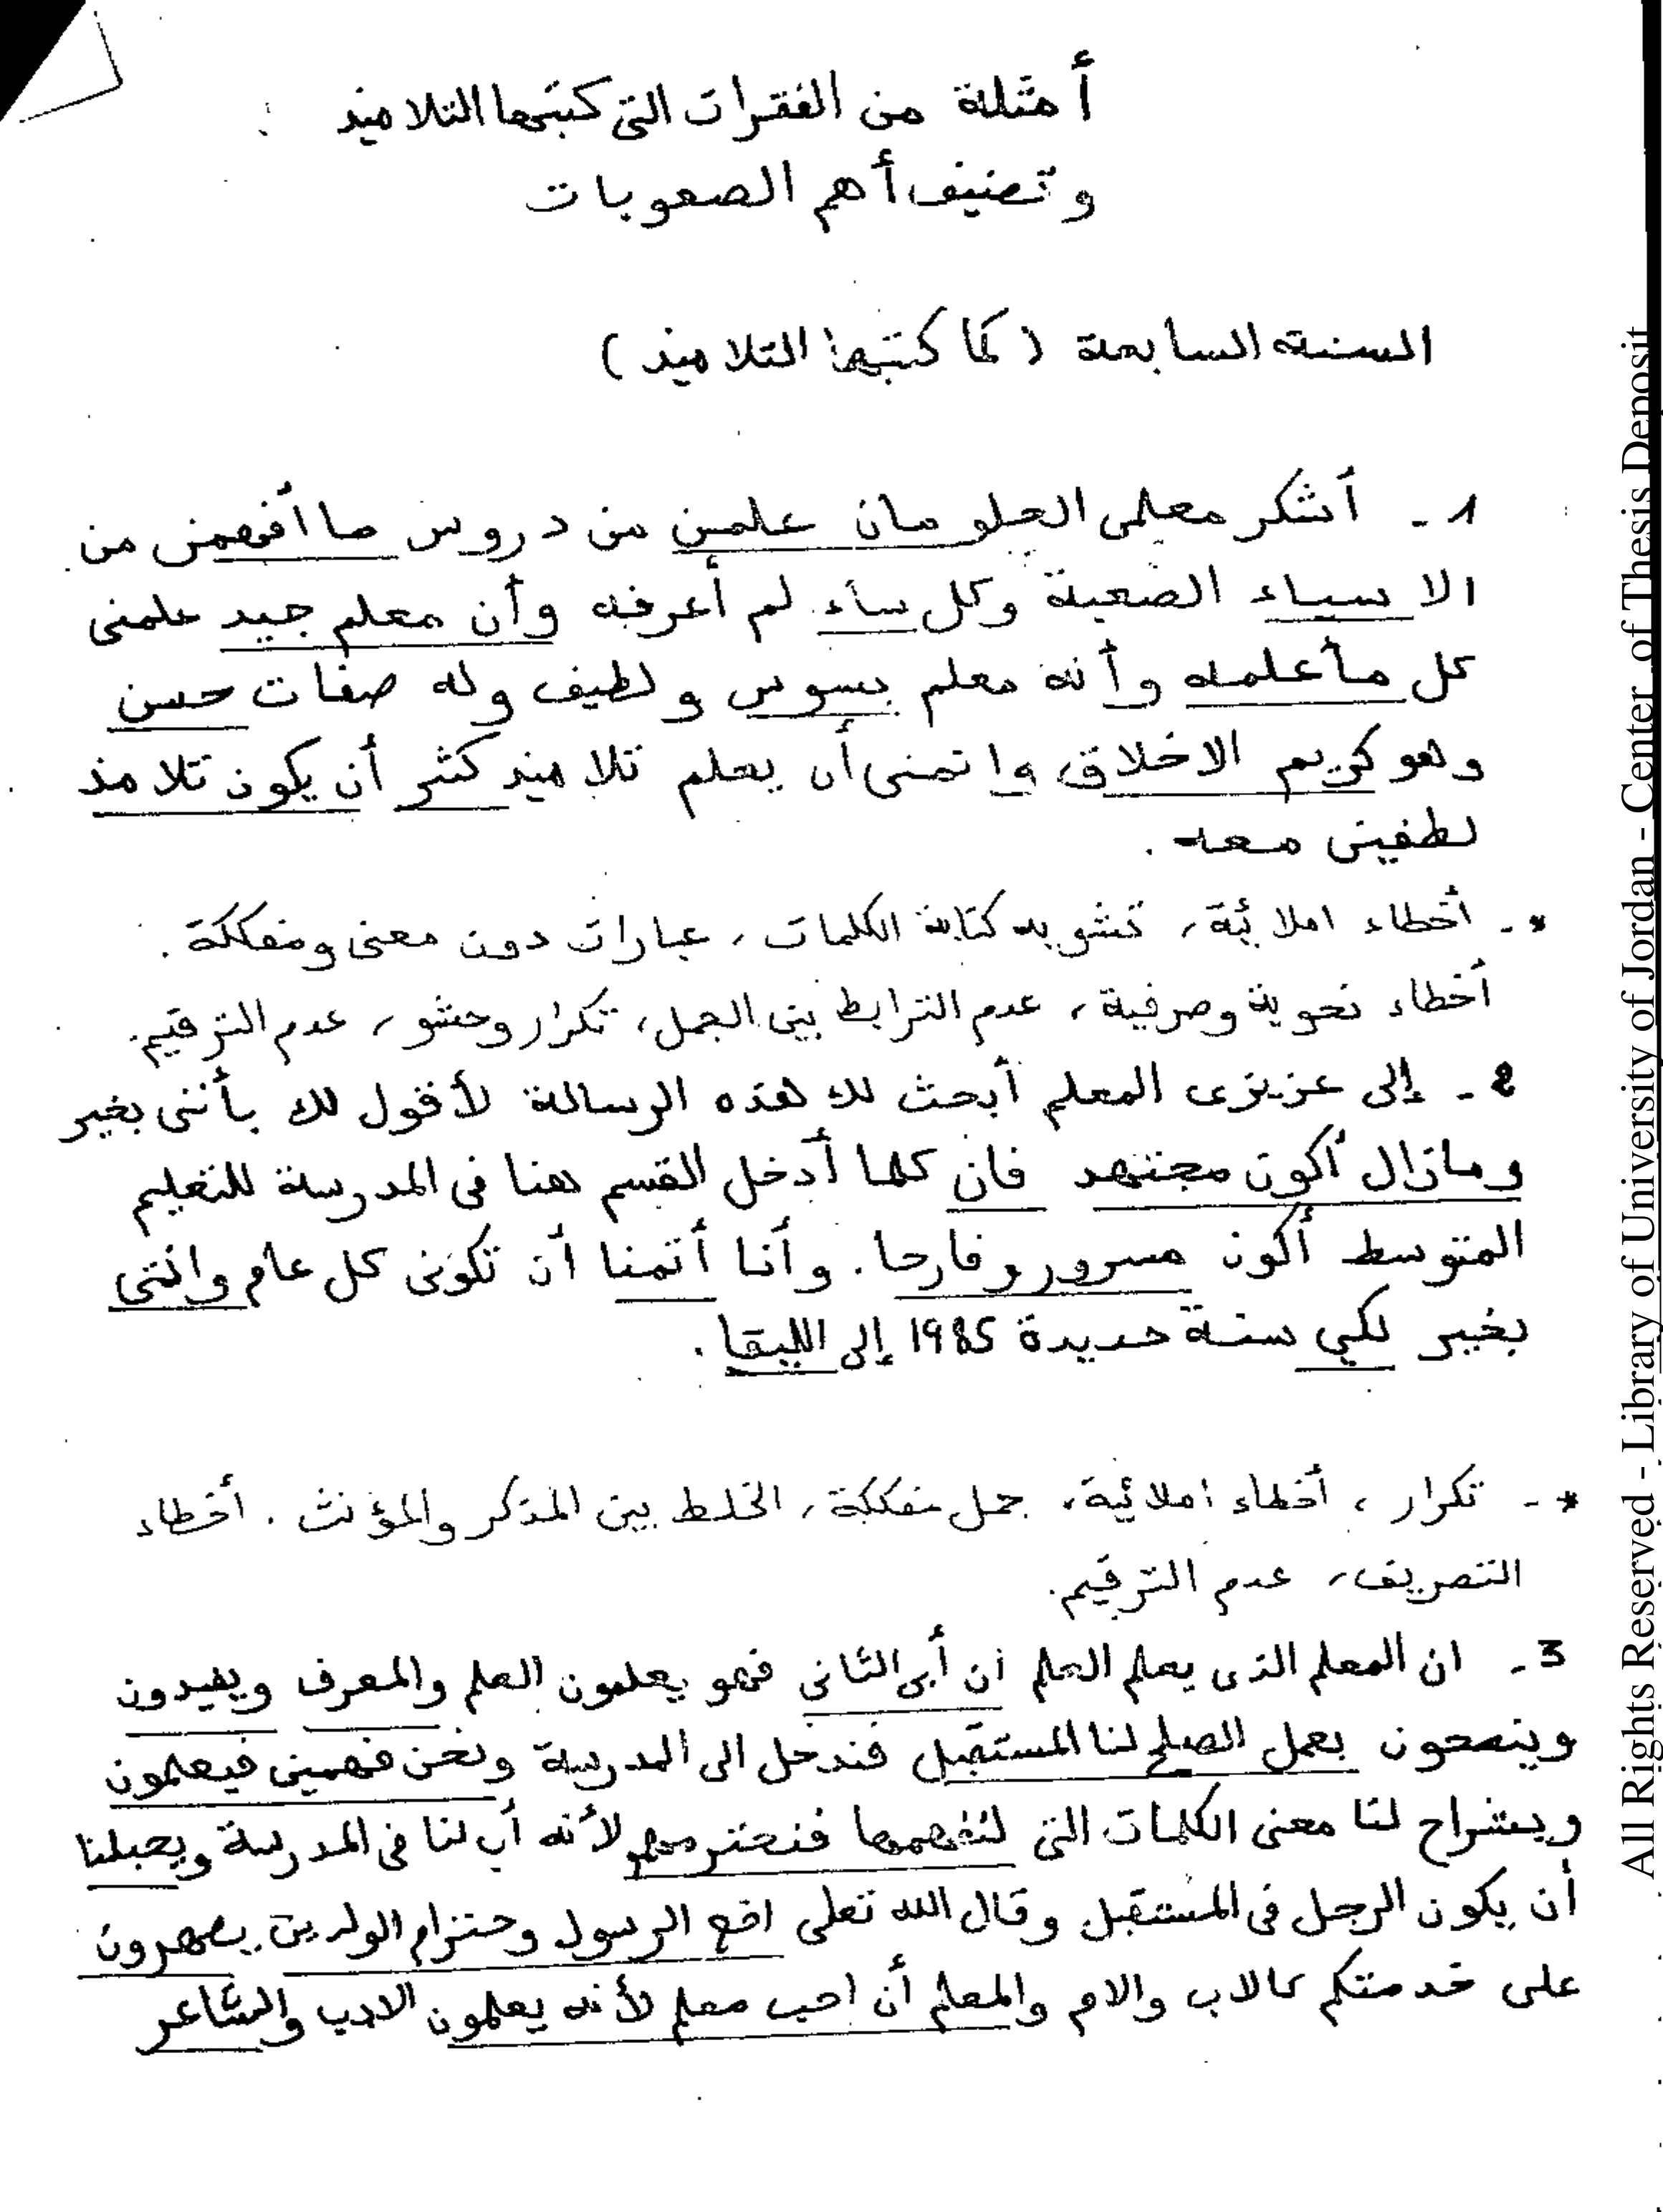 أمثلة من الفقرات التي كتبها التلاميذ
وتصنيف أهم الصعوبات
السنة السابعة (كما كتبها التلاميذ)
1 - أشكر معلمي الحلو مان علمين من دروس ما أفهمني من
الا سياء الصعبة وكل ساء لم أعرفه وأن معلم جيد علمني
كل ما أعلمه وأنه معلم بسوس ولطيف وله صفات حسن
وهو كريم الاخلاق واتمنى أن يعلم تلاميذ كثر أن يكون تلامذ
لطفين معه.
*- أخطاء املائية، تشويه كتابة الكلمات، عبارات دون معنى ومفككة.
أخطاء نحوية وصرفية، عدم الترابط بين الجمل، تكرار وحشو، عدم الترقيم.
2 - إلى عزيزي المعلم أبحث لك هذه الرسالة لأقول لك بأنني بخير
ومازال أكون مجتهد فان كلما أدخل القسم هنا في المدرسة للتعليم
المتوسط أكون مسرور وفارحا. وأنا أتمنا أن تكوني كل عام وانتي
بخير لكي سنة جديدة 1985 إلى الليقا.
*- تكرار، أخطاء املائية، جمل مفككة، الخلط بين المذكر والمؤنث. أخطاء
التصريف، عدم الترقيم.
3 - ان المعلم الذي يعلم العلم أن أبي الثاني فهو يعلمون العلم والمعرف ويفيدون
وينصحون بعمل الصلح لنا المستقبل فندخل الى المدرسة ونحن فهمين فيعلمون
ويشراح لنا معنى الكلمات التي لنفهمها فنحترمهو لأنه أب لنا في المدرسة ويحبلنا
أن يكون الرجل في المستقبل وقال الله تعلى اقع الرسول وحتزام الولدين يصهرون
على خدمتكم كالاب والام والمعلم أن احب معلم لأنه يعلمون الادب والشاعر
All Rights Reserved - Library of University of Jordan - Center of Thesis Deposit